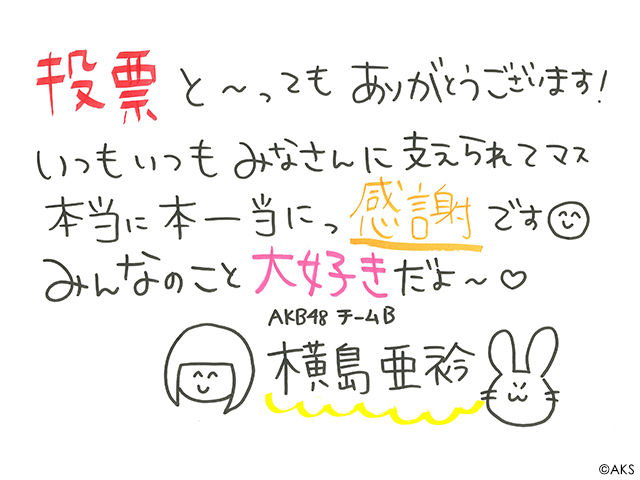 投票と～ってもありがとうございます!
いつもいつもみなさんに支えられてマス
本当に本一当にっ感謝です
みんなのこと大好きだよ～♡
AKB48 チームB
横島亜衿
©AKS